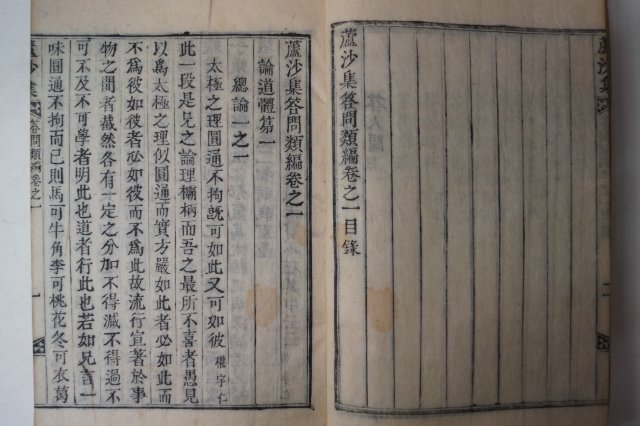 蘆沙集
蘆沙集答問類編卷之一目錄
蘆沙集答問類編卷之一
論道體第一
總論一之一
太極之理圓通不拘旣可如此又可如彼 權宇仁
此一段是兄之論理欛柄而吾之最所不喜者愚見
以爲太極之理似圓通而實方嚴如此者必如此而
不爲彼如彼者必如彼而不爲此故流行宣著於事
物之間者截然各有一定之分加不得減不得過不
可不及不可學者明此也道者行此也若如兄言一
味圓通不拘而已則馬可牛角李可桃花冬可衣葛
蘆沙集
答問類編卷之一
一